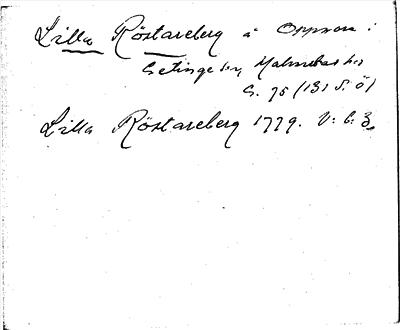 Lilla Röstareberg å Oppmon i
Getinge sn, Malmöhus
S. 75 (131 S. Ö)
Lilla Röstareberg 1779. V: 6: 3.